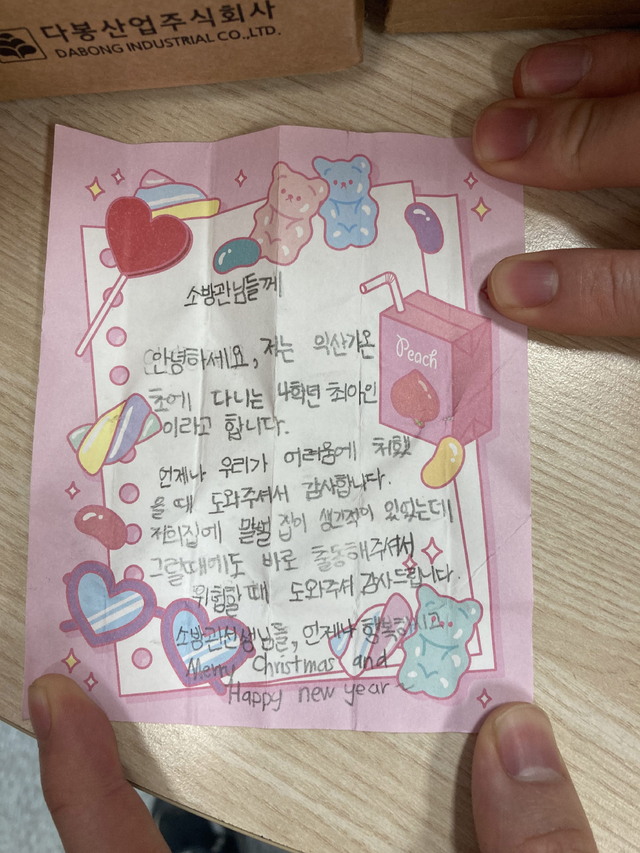 다봉산업주식회사
DABONG INDUSTRIAL CO.,LTD.
소방관님들께
안녕하세요, 저는 익산가온
초에 다니는 4학년 최아인
이라고 합니다.
언제나 우리가 어려움에 처했
을 때 도와주셔서 감사합니다.
저희집에 말벌 집이 생긴적이 있었는데
그럴때에도 바로 출동해주셔서
위험할 때 도와주셔 감사드립니다.
소방관선생님들, 언제나 행복하시고..
Merry Christmas and
Happy new year~
Peach